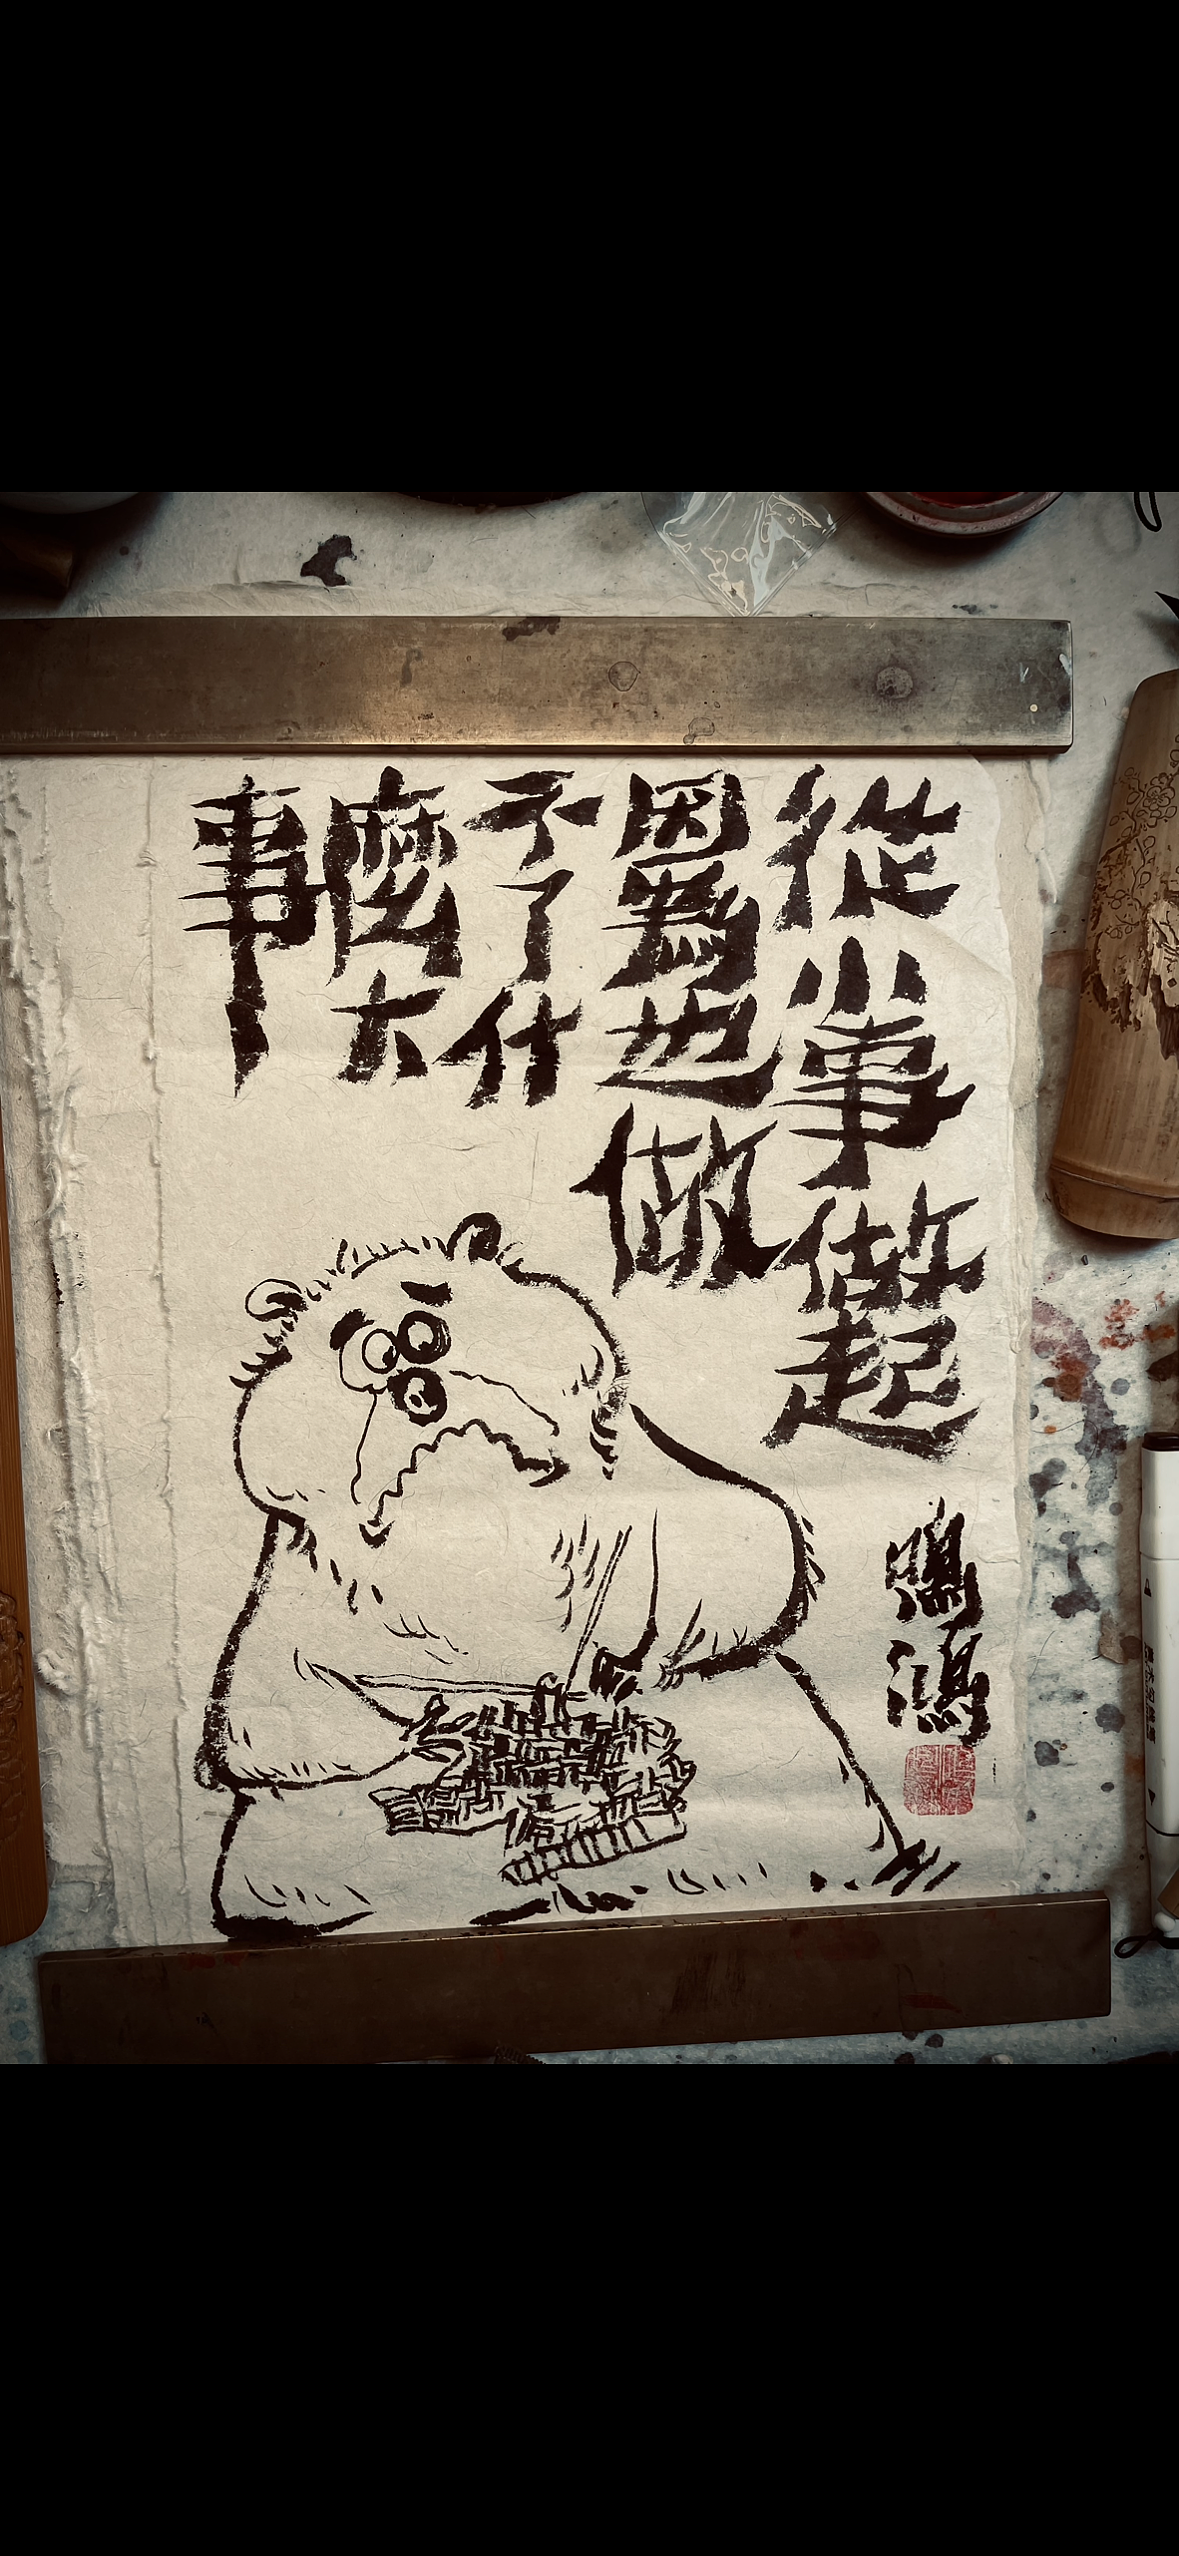 從小事做起
因為也做
不了什
麼大
事
鳴鴻